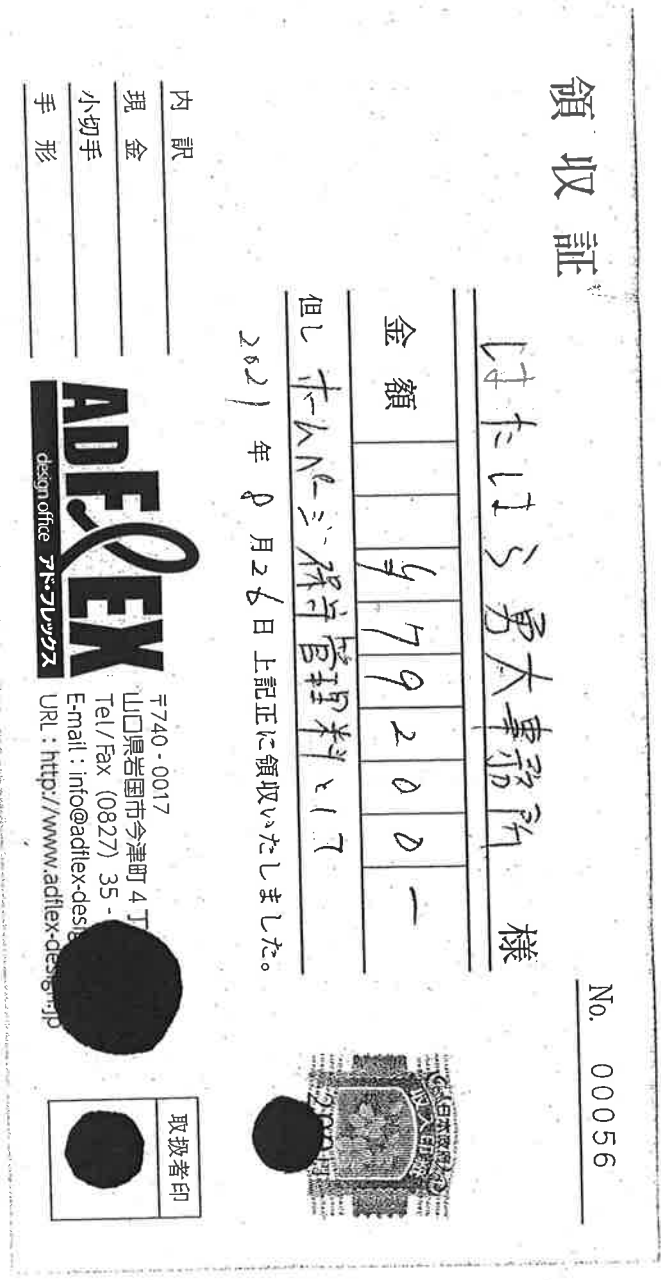 領収証
No. 00056
はたはら勇太事務所 様
金額 ¥79200―
但し ホームページ保守管理料として
2021年8月26日 上記正に領収いたしました。
内訳
現金
小切手
手形
ADFLEX
design office アド・フレックス
〒740-0017
山口県岩国市今津町4丁
Tel/Fax (0827) 35-
E-mail:info@adflex-desi
URL:http://www.adflex-design.jp
日本政府
収入印紙
200円
取扱者印